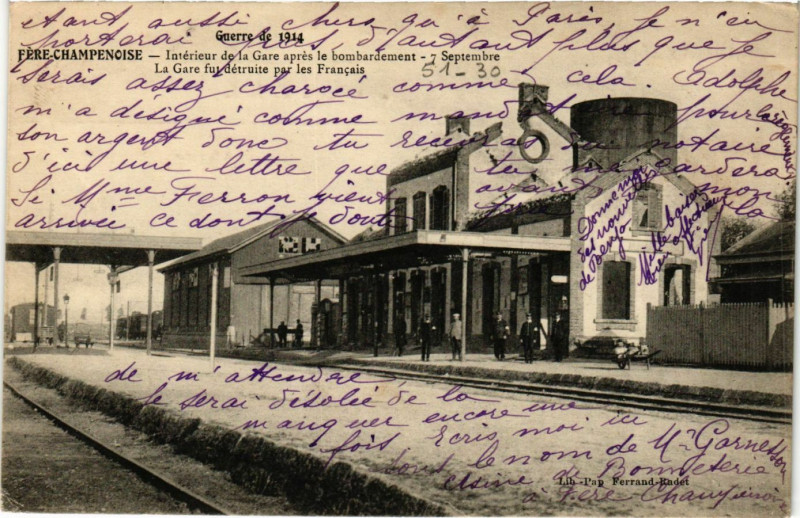 étant aussi cher qu'à Paris, je n'en
porterai pas, d'autant plus que je
Guerre de 1914
FÈRE-CHAMPENOISE — Intérieur de la Gare après le bombardement - 7 Septembre
La Gare fut détruite par les Français
51-30
serais assez chargée comme cela. Adolphe
m'a désigné comme mandat pour
son argent donc tu recevras du notaire
d'ici une lettre que tu garderas
Si Mme Ferron vient avant mon
arrivée ce dont je doute, la
Donne moi
des nouvelles
de
Mille baisers
bien affectueux
de m'attendre
je serai désolée de la
manquer encore une
fois, Ecris moi un
dont le nom de Mr Garnesson
Usine de Bonneterie
à Fère Champenoise
Lib.-Pap. Ferrand-Radet